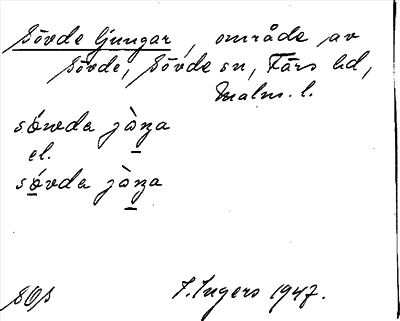 Sövde ljungar, område av
Sövde, Sövde sn, Färs hd,
Malm. l.
sówda jàŋa
el.
sóvda jàŋa
SOs I. Ingers 1947.